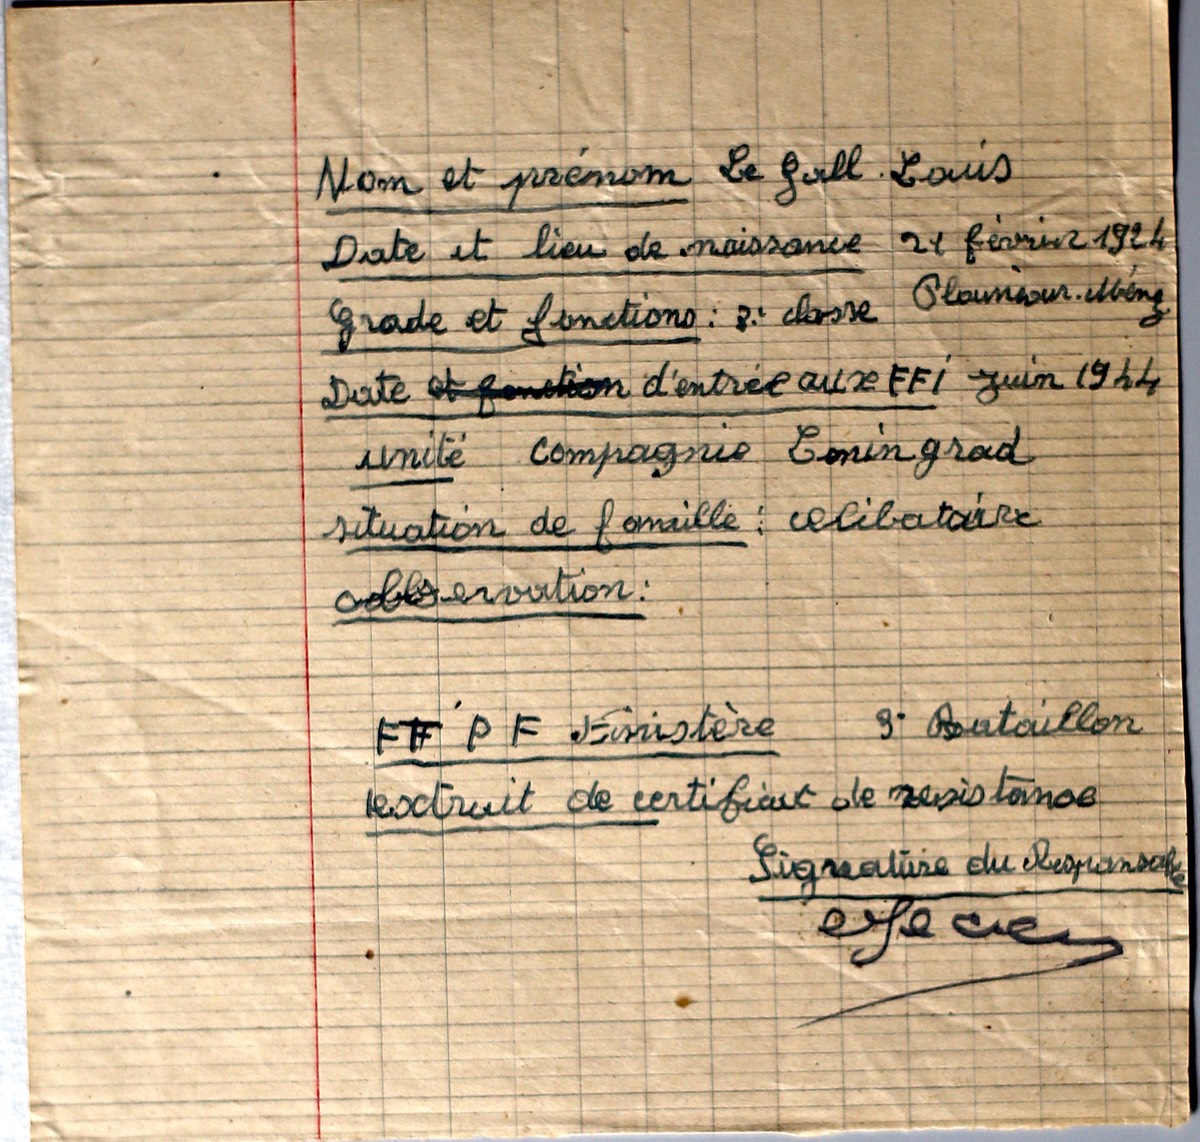 Nom et prénom Le Gall Louis
Date et lieu de naissance 21 février 1924
Plounéour-Ménez
Grade et fonctions : 2e classe
Date et fonction d'entrée aux FFI Juin 1944
unité compagnie Leningrad
situation de famille : celibataire
observation :
FT P F Finistère 3e Bataillon
extrait de certificat de resistance
Signature du Responsable